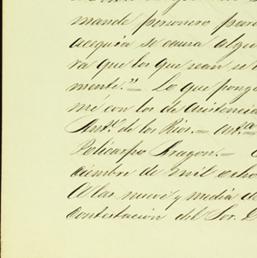 mande personero para
acequia se causa algu
ra que los que sean se
mente." Lo que pong
mé con los de asistencia
Ant.º de los Rios.=
Policarpo Aragon.=
ciembre de mil ocho
A las nueve y media de
Contestacion del Sor.